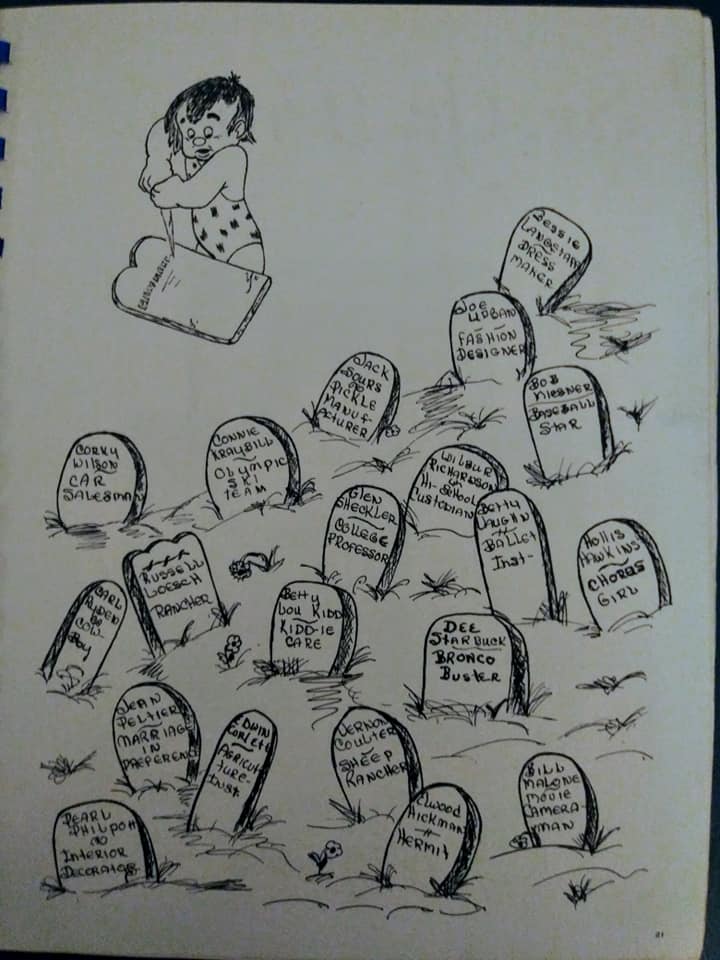 Bessie
Langeham
Dress
Maker
Joe
Urban
Fashion
Designer
Jack
Sours
Pickle
Manuf-
acturer
Bob
Kiesner
Baseball
Star
Corky
Wilson
Car
Salesman
Connie
Kraybill
Olympic
Ski
Team
Wilbur
Richardson
Hi-School
Custodian
Glen
Sheckler
College
Professor
Betty
Vaughn
Ballet
Inst-
Hollis
Hawkins
Chorus
Girl
Carl
Ryden
Cow-
Boy
Russell
Loesch
Rancher
Betty
Lou Kidd
Kidd-ie
Care
Dee
Starbuck
Bronco
Buster
Jean
Peltier
Marriage
in
Preference
Edwin
Corlett
Agricul
ture-
Inst
Vernon
Coulter
Sheep
Rancher
Elwood
Hickman
Hermit
Bill
Malone
Movie
Camera-
man
Pearl
Philpott
Interior
Decorator